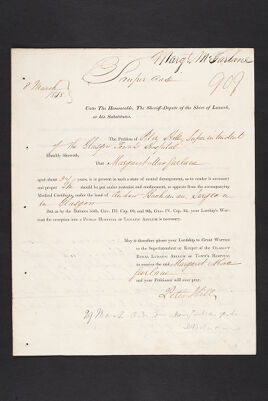 Margt McFarlane
Pauper Case
8 March
909
Unto The Honourable, The Sheriff-Depute of the Shire of Lanark,
or his Substitutes.
The Petition of Peter Hill, Superintendent
of the Glasgow Town's Hospital
Humbly Sheweth,
That Margaret Macfarlane
aged about years, is at present in such a state of mental derangement, as to render it necessary
and proper should be put under restraint and confinement, as appears from the accompanying
Medical Certificate, under the hand of Buchanan Surgeon
in Glasgow
But as by the Statutes 55th, Geo. III. Cap. 69, and 9th, Geo. IV. Cap. 34, your Lordship's Warrant
for reception into a Public Hospital or Lunatic Asylum is necessary.
May it therefore please your Lordship to Grant Warrant
to the Superintendent or Keeper of the Glasgow
Royal Lunatic Asylum or Town's Hospital
to receive the said Margaret Mac
farlane
and your Petitioner will ever pray.
Peter Hill